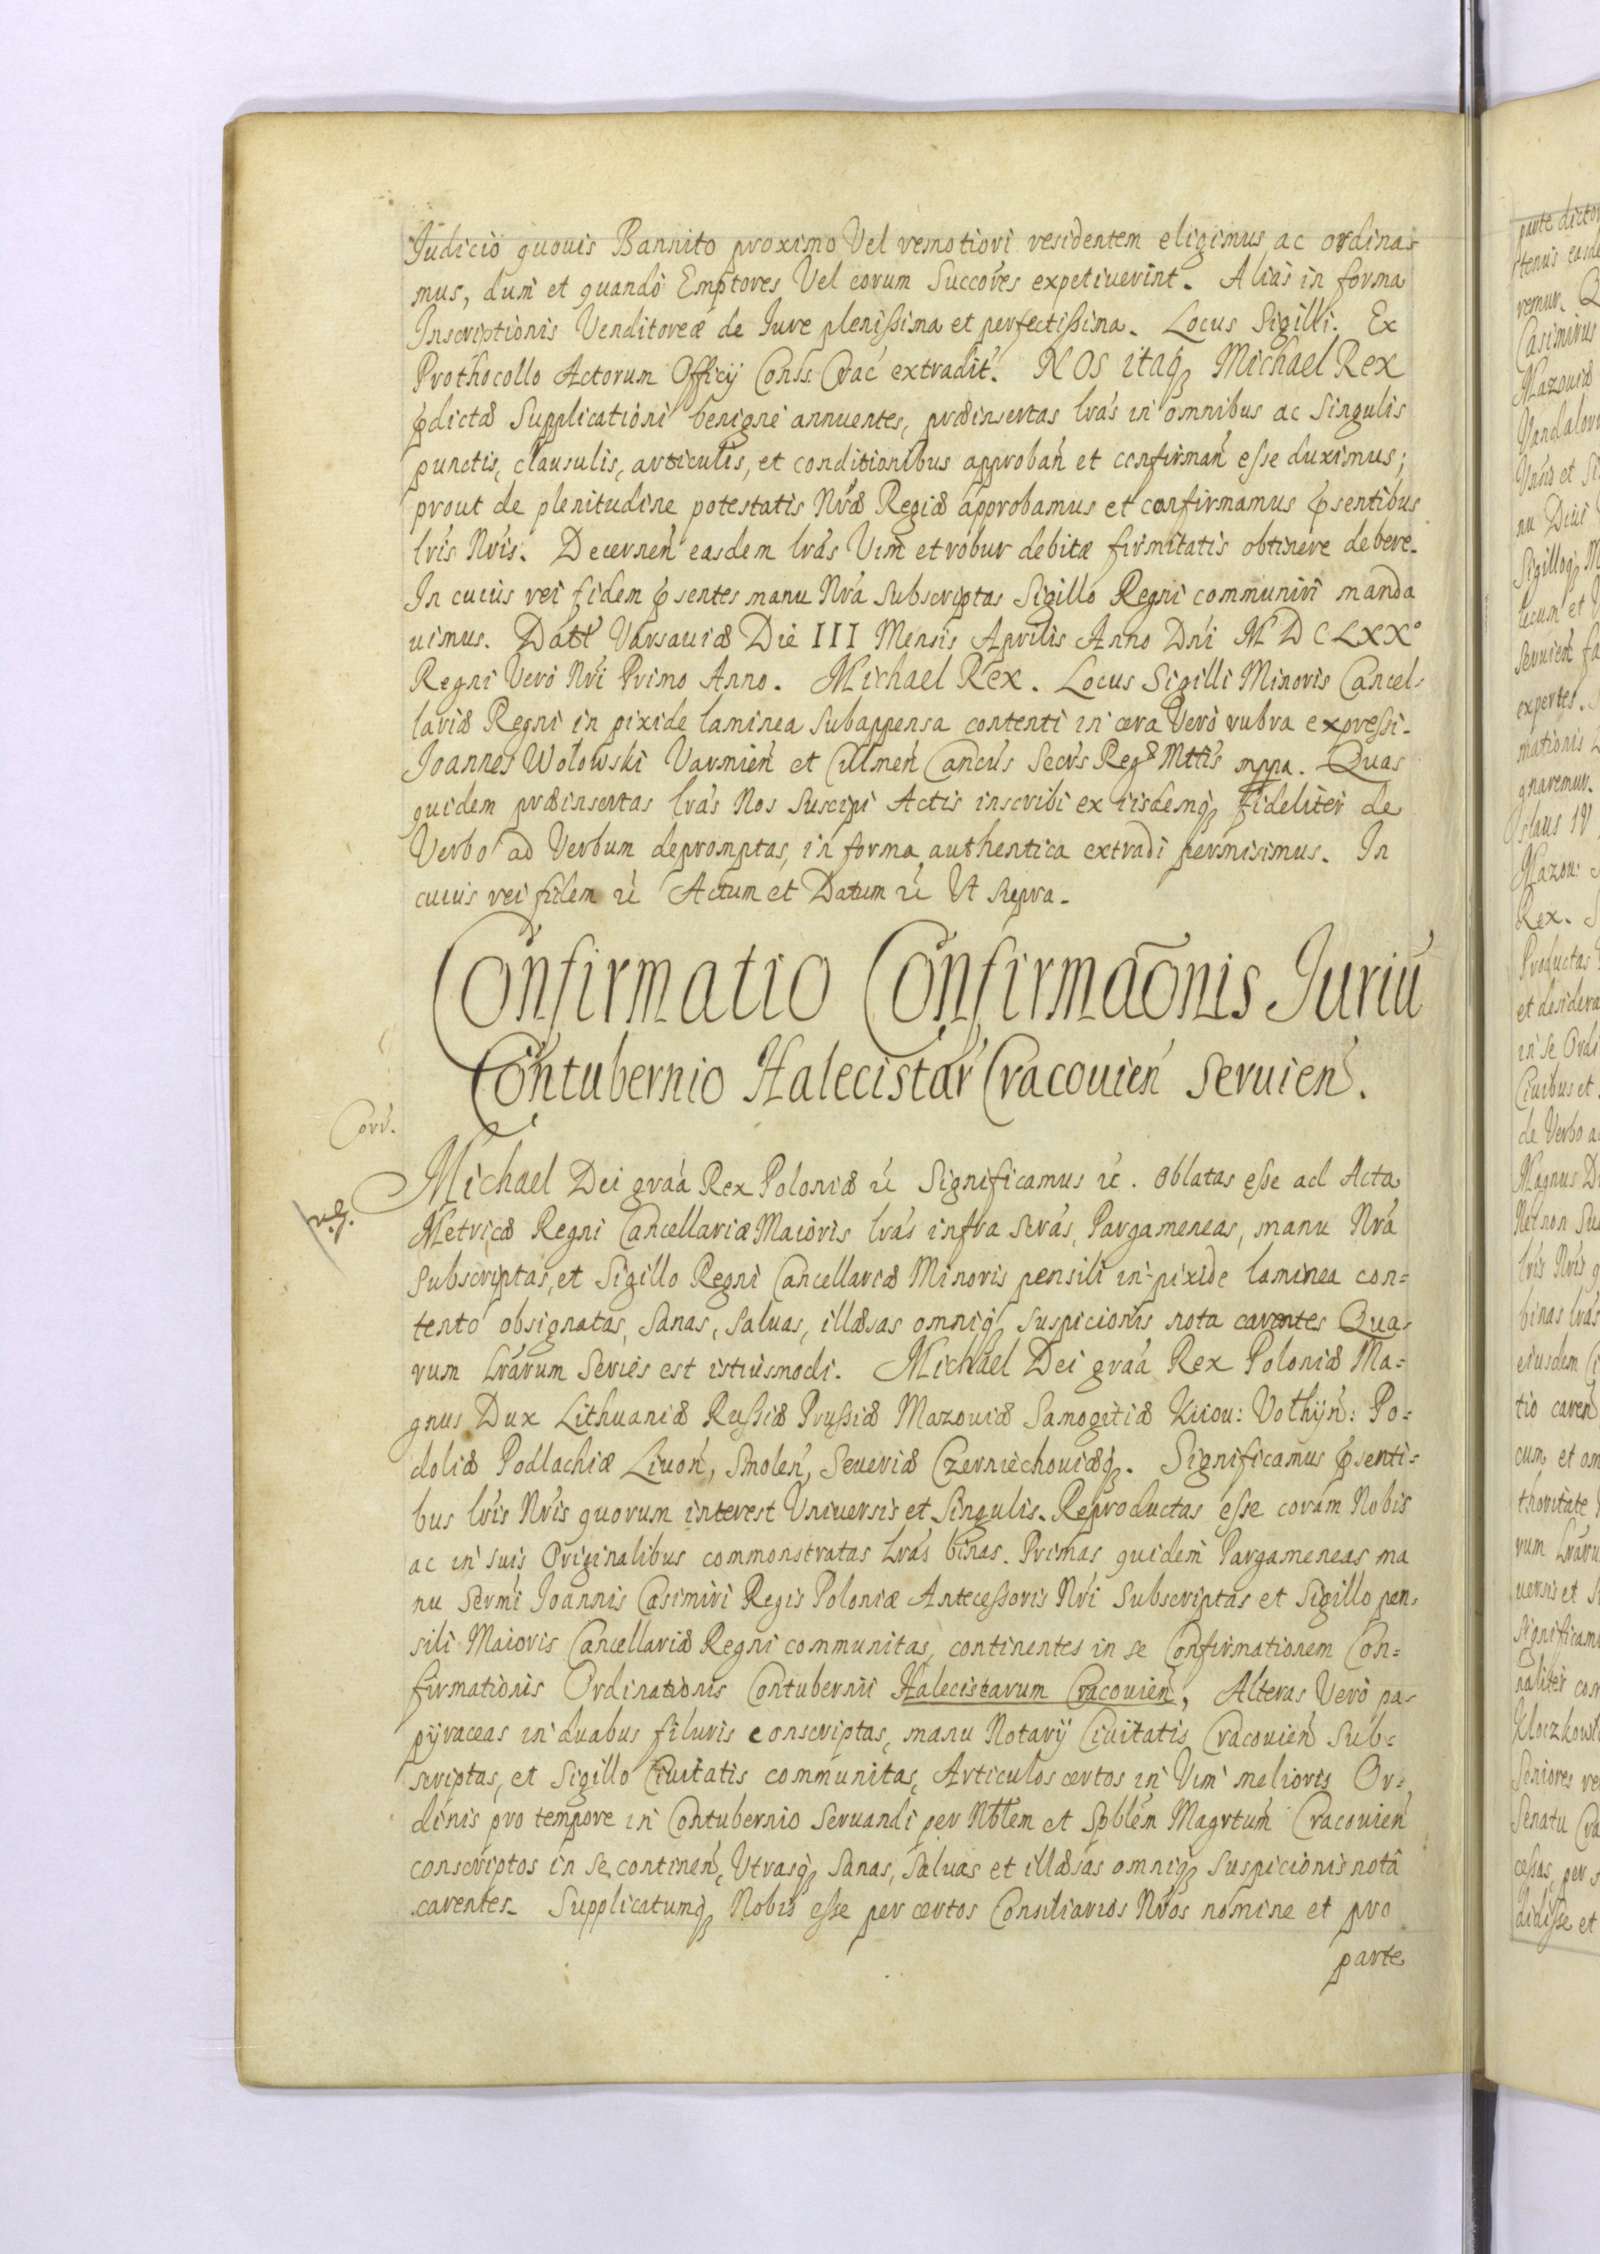 Judicio quouis Bannito proximo Vel remotiori residentem eligimus ac ordina-
mus, dum et quando Emptores Vel eorum Succóres expetiuerint. Alias in forma
Inscriptionis Venditoreæ de Iure plenissima et perfectissima. Locus Sigilli. Ex
Prothocollo Actorum Officÿ Conss Crac extradit. NOS itaq Michael Rex
pdictæ Supplicationi benigne annuentes, præinsertas lras in omnibus ac Singulis
punctis, clausulis, articulis, et conditionibus approban et confirman esse duximus;
prout de plenitudine potestatis Nræ Regiæ approbamus et confirmamus psentibus
lris Nris. Decernen easdem lras Vim et robur debitæ firmitatis obtinere debere.
In cuius rei fidem psentes manu Nra Subscriptas Sigillo Regni communiri manda
uimus. Datt Varsauiæ Die III Mensis Aprilis Anno Dni MDCLXX°
Regni Vero Nri Primo Anno. Michael Rex. Locus Sigilli Minoris Cancel-
lariæ Regni in pixide laminea subappensa contenti in cera Vero rubra expressi.
Joannes Wołowski Varmien et Culmen Cancus Secrs Regæ Mttis mppa. Quas
quidem præinsertas lras Nos Suscipi Actis inscribi ex iisdemq fideliter de
Verbo ad Verbum depromptas, in forma authentica extradi permisimus. In
cuius rei fidem &c Actum et Datum &c Ut Supra.
Confirmatio Confirmaōnis Juriū
Contubernio Halecistar Cracouien Seruien.
Corr.
Michael Dei graa Rex Poloniæ &c Significamus &c. Oblatas esse ad Acta
Metricæ Regni Cancellariæ Maioris lras infra Scras, Pargameneas, manu Nra
Subscriptas, et Sigillo Regni Cancellariæ Minoris pensili in pixide laminea con=
tento obsignatas, Sanas, Saluas, illæsas omniq Suspicionis nota carentes Qua-
rum Lrarum Series est istiusmodi. Michael Dei graa Rex Poloniæ Ma=
gnus Dux Lithuaniæ Russiæ Prussiæ Mazouiæ Samogitiæ Kiiou: Volhÿn: Po=
doliæ Podlachiæ Liuon, Smolen, Seueriæ Czerniechouiæq. Significamus psenti=
bus lris Nris quorum interest Uniuersis et Singulis. Reproductas esse coram Nobis
ac in suis Originalibus commonstratas Lras binas. Primas quidem Pargameneas ma
nu Sermi Joannis Casimiri Regis Poloniæ Antecessoris Nri Subscriptas et Sigillo pen-
sili Maioris Cancellariæ Regni communitas, continentes in se Confirmationem Con=
firmationis Ordinationis Contubernii Halecistarum Cracouien, Alteras Vero pa-
pÿraceas in duabus filuris conscriptas, manu Notarÿ Ciuitatis Cracouien Sub=
scriptas, et Sigillo Ciuitatis communitas, Articulos certos in Vim melioris Or-
dinis pro tempore in Contubernio Seruandi per Nblem et Spblem Magrtum Cracouien
conscriptos in se continen, Utrasq Sanas, Saluas et illæsas omniq Suspicionis notâ
carentes. Supplicatumq Nobis esse per certos Consiliarios Nros nomine et pro
parte